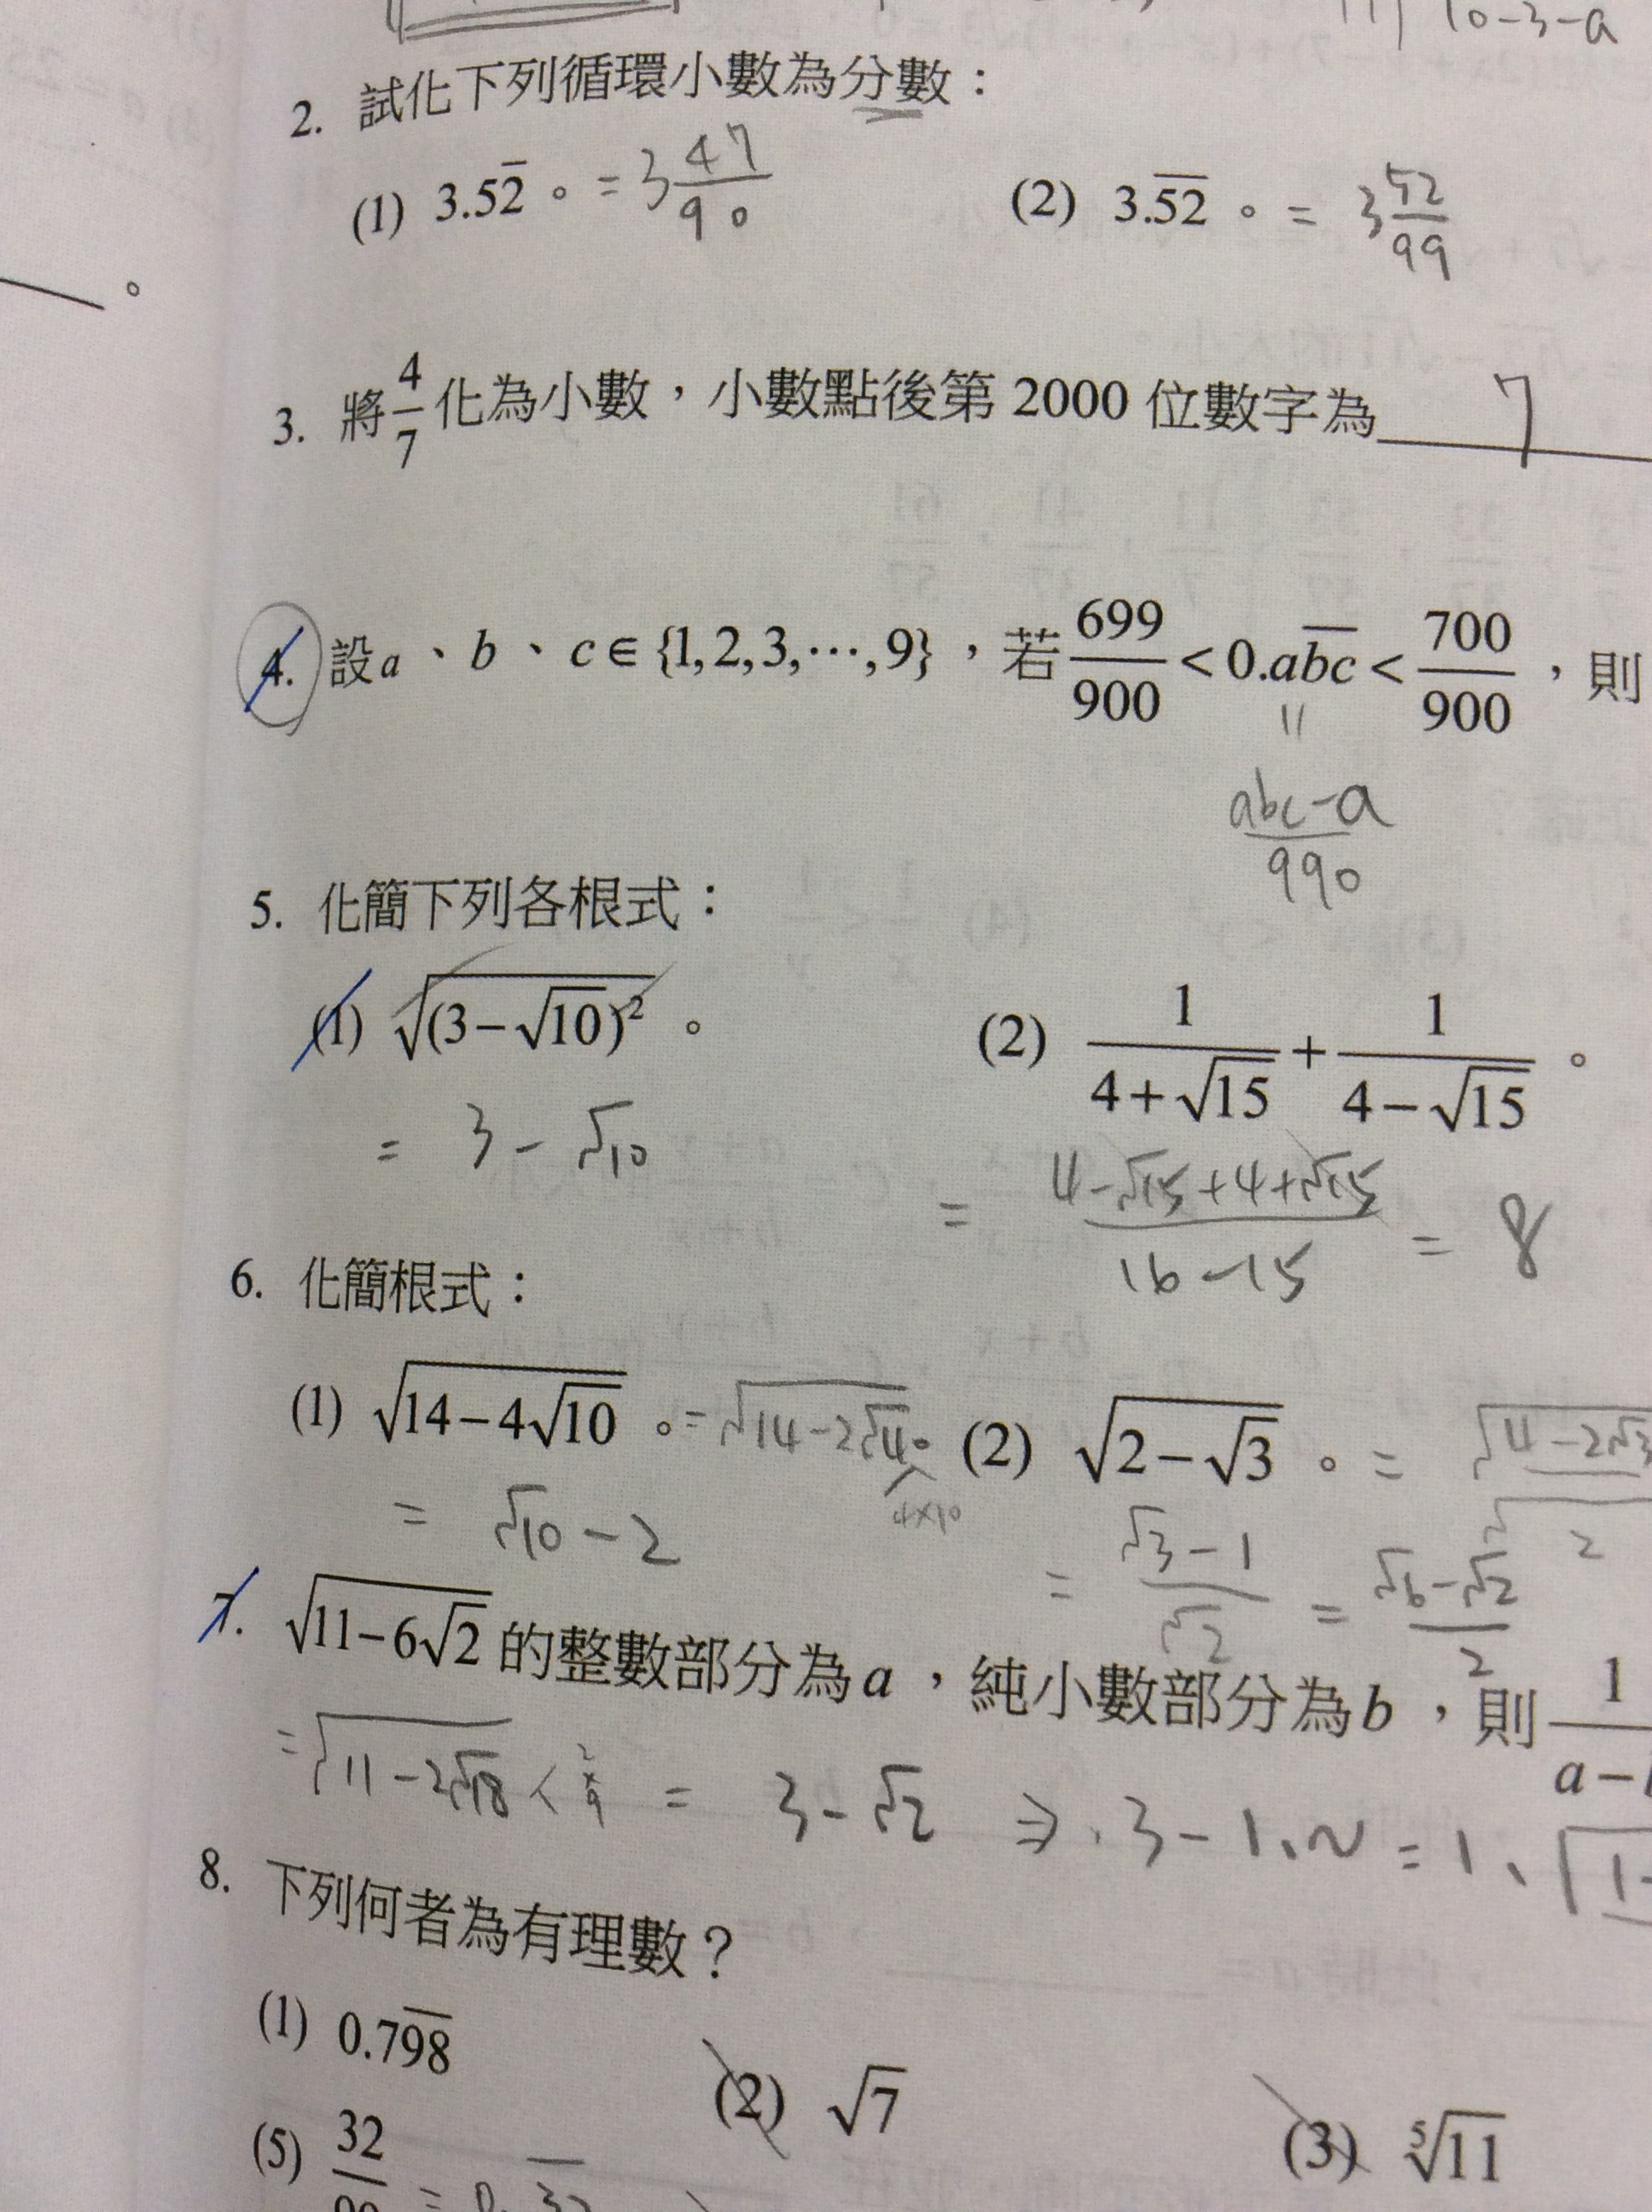 10-3-a
2. 試化下列循環小數為分數：
(1) 3.52̅ 。 = 3 47/90 (2) 3.5̅2̅ 。 = 3 52/99
3. 將 4/7 化為小數，小數點後第 2000 位數字為 7
4. 設 a、b、c ∈ {1, 2, 3, ⋯, 9}，若 699/900 < 0.ab̅c̅ < 700/900，則
||
abc-a/990
5. 化簡下列各根式：
(1) √((3-√10)²) 。 (2) 1/(4+√15) + 1/(4-√15) 。
= 3-√10 = (4-√15+4+√15)/(16-15) = 8
6. 化簡根式：
(1) √(14-4√10) 。 = √(14-2√40) (2) √(2-√3) 。 = √(4-2√3)/2
4×10
= √10-2 = (√3-1)/√2 = (√6-√2)/2
7. √(11-6√2) 的整數部分為 a，純小數部分為 b，則 1/a-
= √(11-2√18) < 2×9 = 3-√2 ⇒ 3-1.~ = 1.
8. 下列何者為有理數？
(1) 0.79̅8̅
(2) √7
(3) ⁵√11
(5) 32